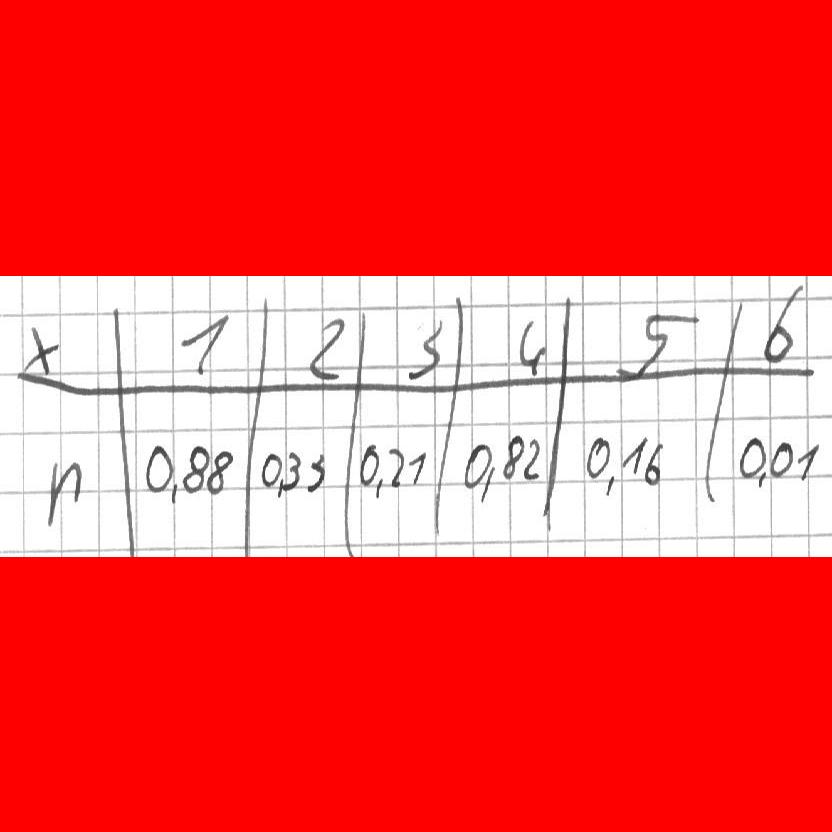 x 1 2 3 4 5 6
n 0,88 0,33 0,21 0,82 0,16 0,01